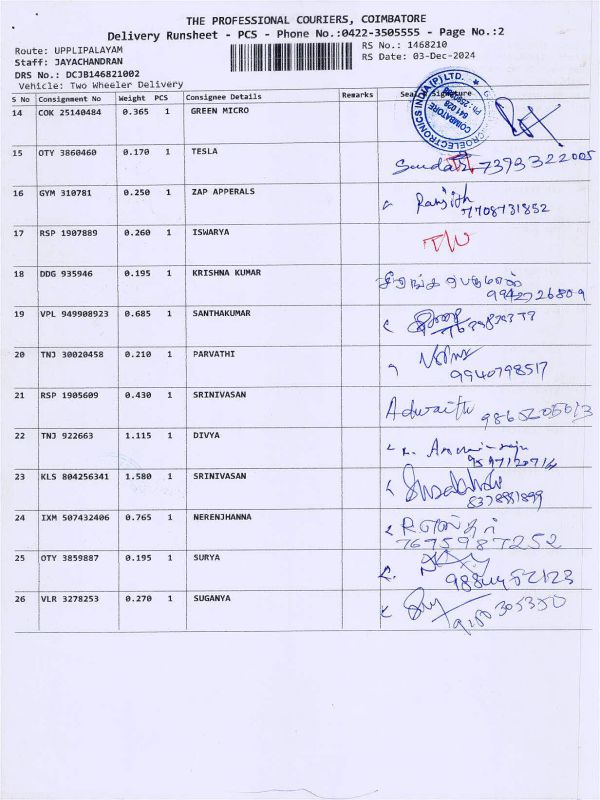 THE PROFESSIONAL COURIERS, COIMBATORE
Delivery Runsheet - PCS - Phone No.:0422-3505555 - Page No.:2
Route: UPPLIPALAYAM
RS No.: 1468210
Staff: JAYACHANDRAN
RS Date: 03-Dec-2024
DRS No.: DCJB146821002
Vehicle: Two Wheeler Delivery
S No Consignment No Weight PCS Consignee Details Remarks Seal Signature
14 COK 25140484 0.365 1 GREEN MICRO
15 OTY 3860460 0.170 1 TESLA 7393322005
16 GYM 310781 0.250 1 ZAP APPERALS Ranjith
7708731852
17 RSP 1907889 0.260 1 ISWARYA
18 DDG 935946 0.195 1 KRISHNA KUMAR
9942726809
19 VPL 949908923 0.685 1 SANTHAKUMAR
20 TNJ 30020458 0.210 1 PARVATHI
9940798517
21 RSP 1905609 0.430 1 SRINIVASAN Adwaith
22 TNJ 922663 1.115 1 DIVYA
23 KLS 804256341 1.580 1 SRINIVASAN
24 IXM 507432406 0.765 1 NERENJHANNA
7675987252
25 OTY 3859887 0.195 1 SURYA
26 VLR 3278253 0.270 1 SUGANYA